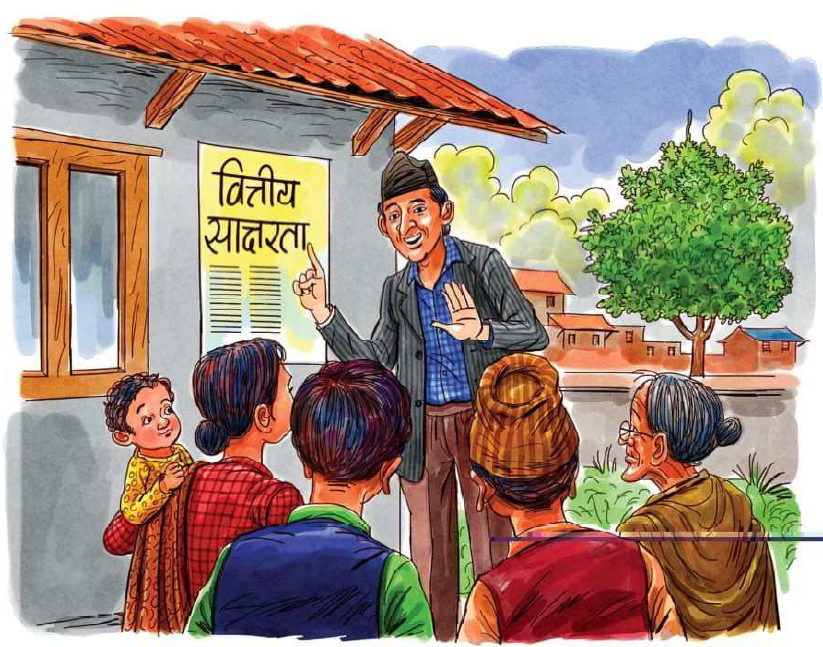 वित्तीय
साक्षरता